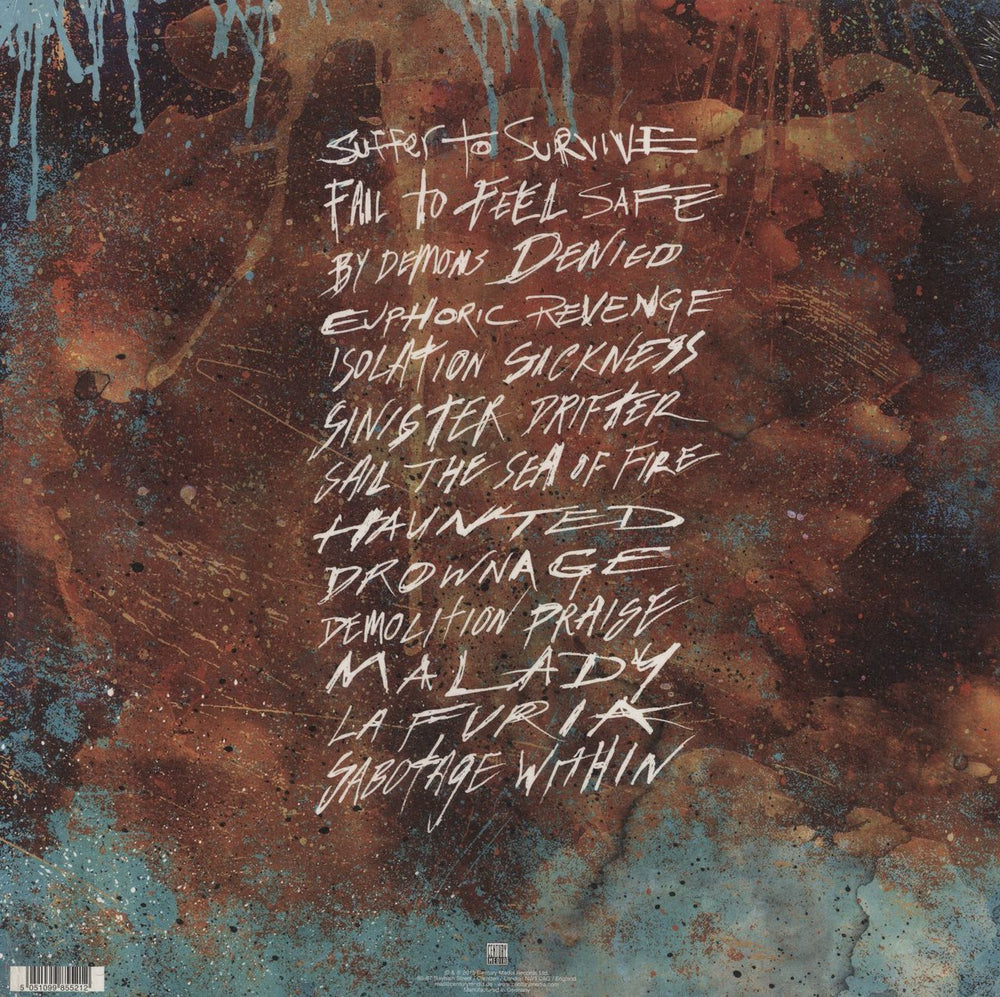 SUFFER TO SURVIVE
FAIL TO FEEL SAFE
BY DEMONS DENIED
EUPHORIC REVENGE
ISOLATION SICKNESS
SINISTER DRIFTER
SAIL THE SEA OF FIRE
HAUNTED
DROWNAGE
DEMOLITION PRAISE
MALADY
LA FURIA
SABOTAGE WITHIN
CENTURY
MEDIA
Century Media Records Ltd.
London / England
Manufactured in Germany
5 051099 855212